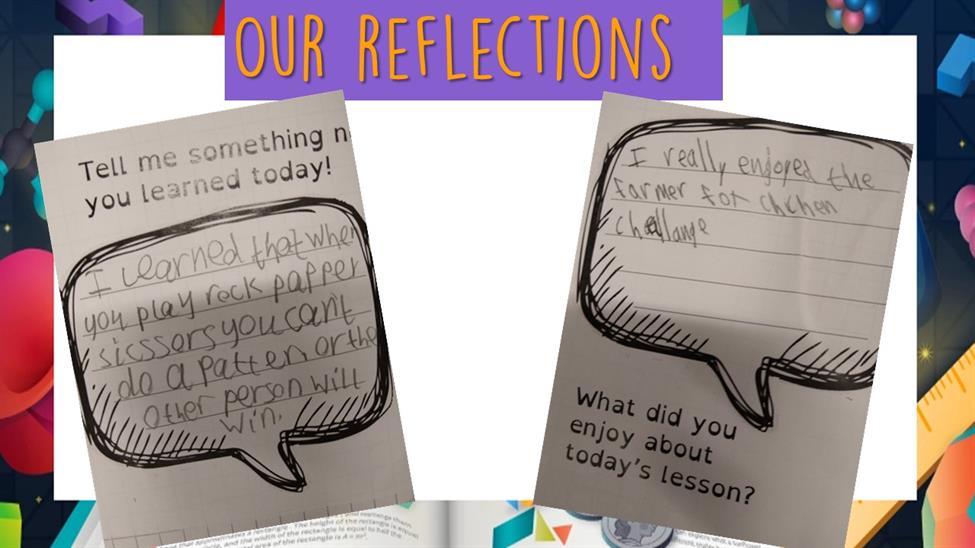 OUR REFLECTIONS
Tell me something n
you learned today!
I learned that when
you play rock papper
sicssors you can't
do a patten or the
other person will
win.
I really enjoyed the
farmer fox chchen
challange
What did you
enjoy about
today's lesson?